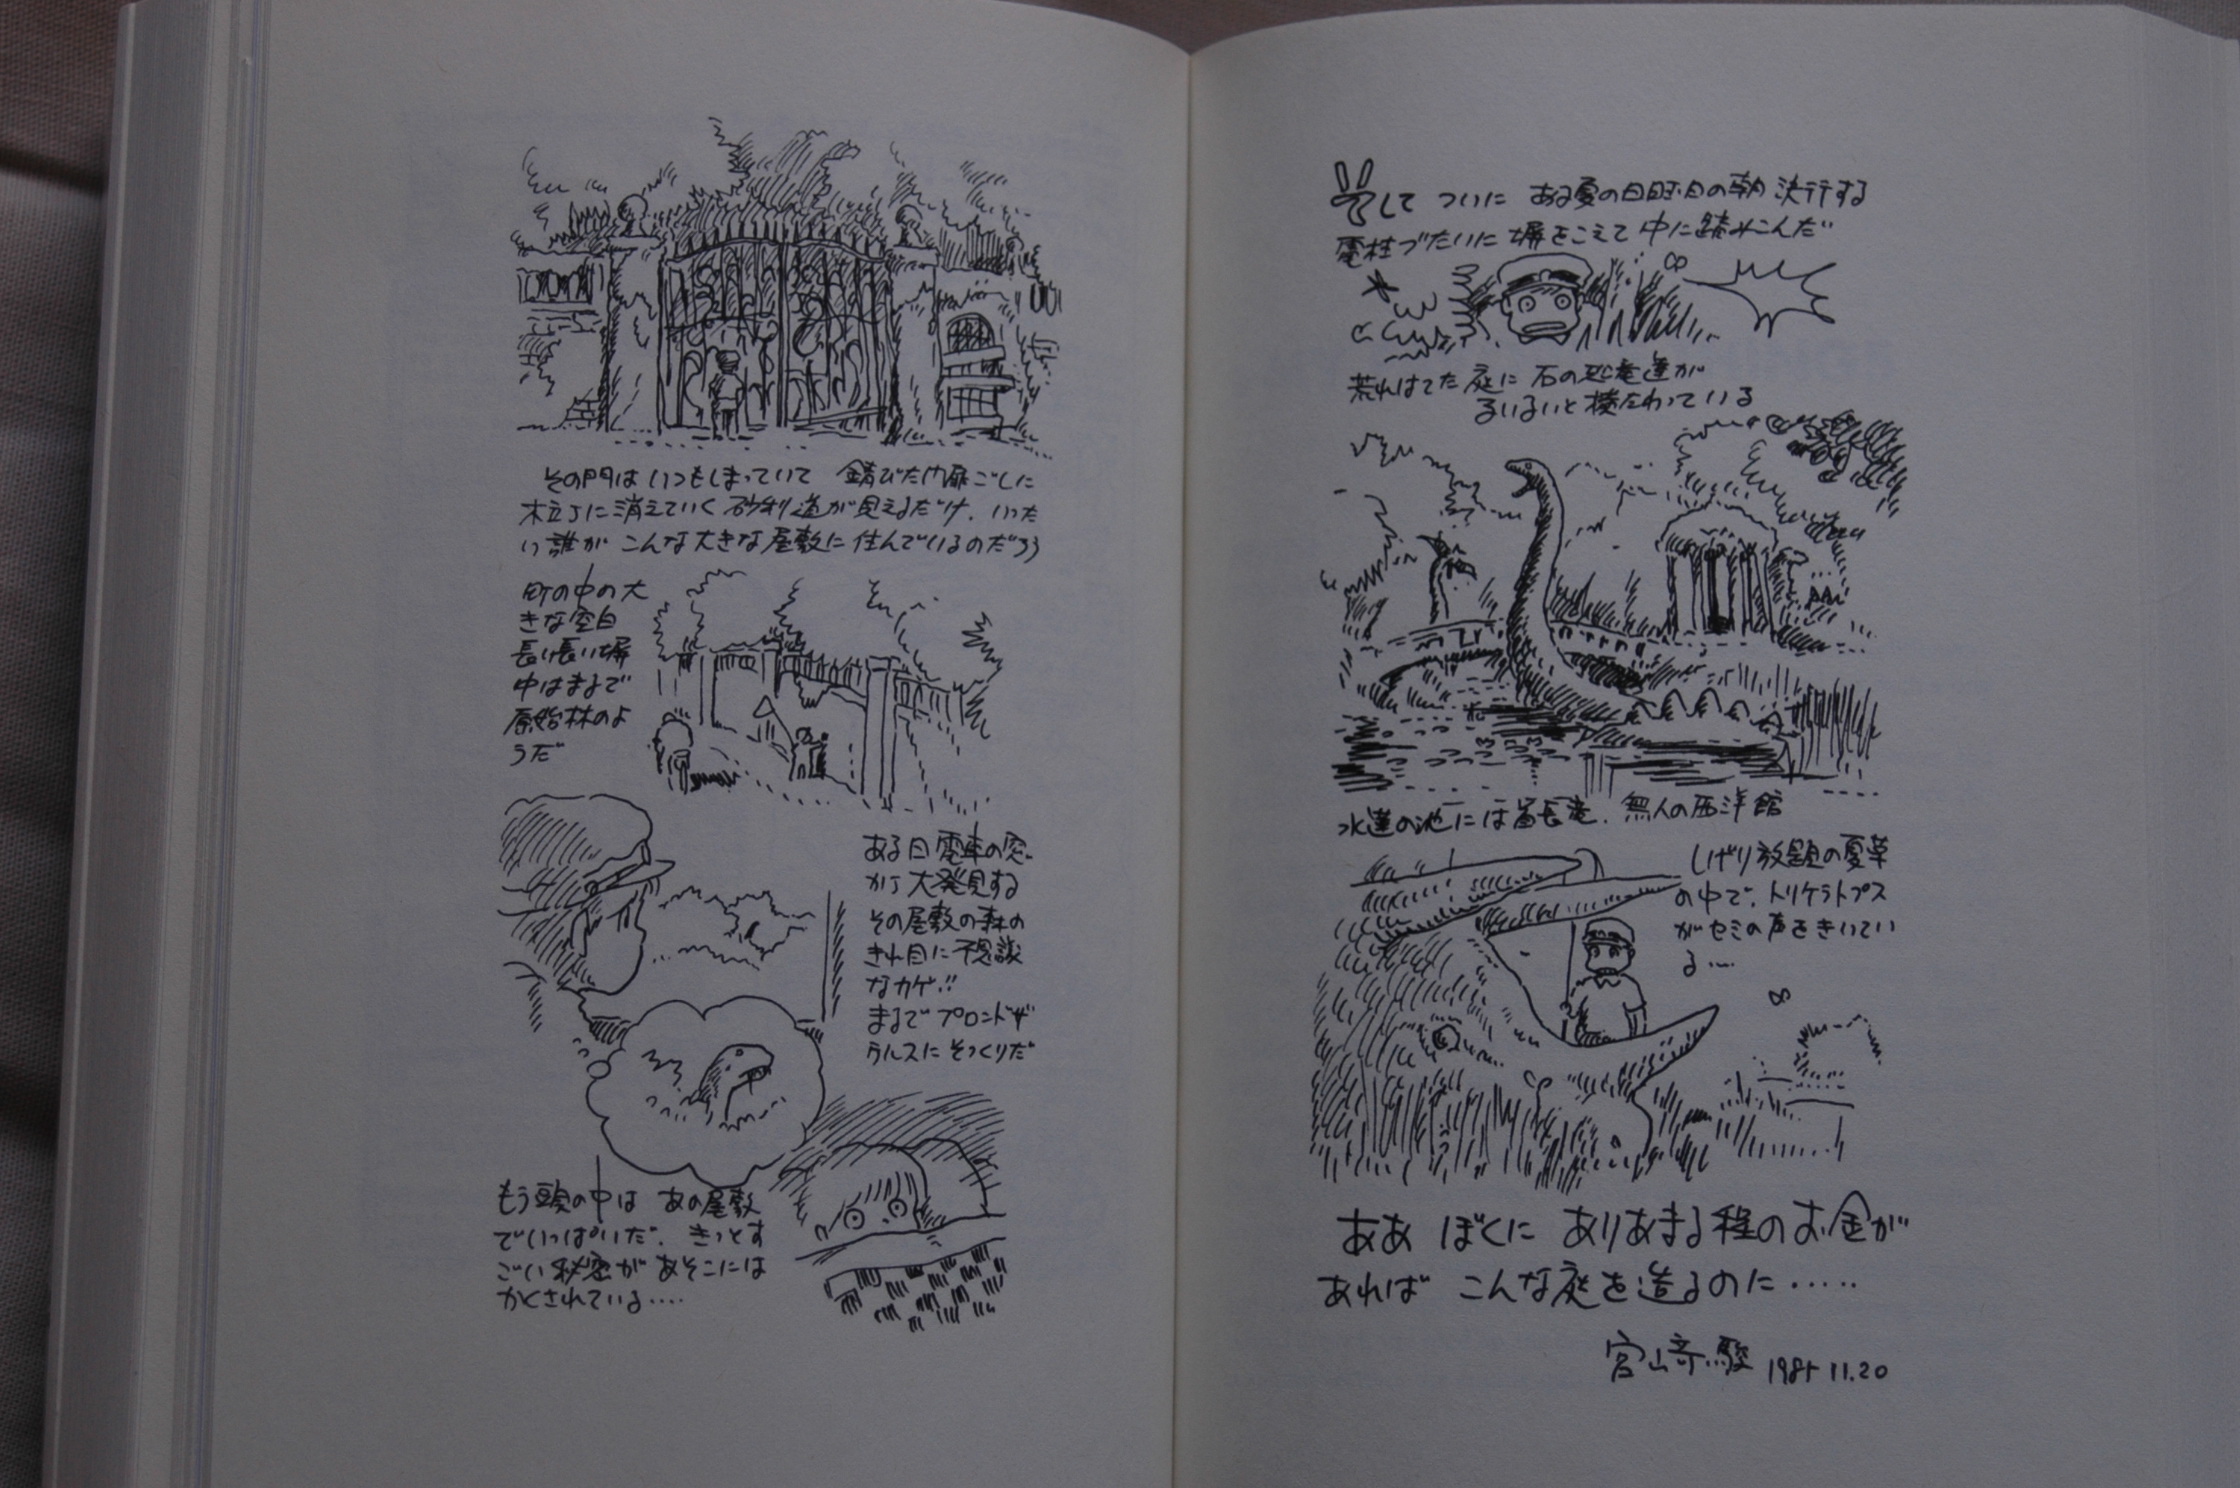 その門はいつもしまっていて 錆びた門扉ごしに
木立に消えていく砂利道が見えるだけ．いった
い誰が こんな大きな屋敷に住んでいるのだろう
町の中の大
きな空白
長い長い塀
中はまるで
原始林のよ
うだ
ある日電車の窓
から大発見する
その屋敷の森の
きれ目に不思議
なカゲ!!
まるでブロントザ
ウルスにそっくりだ
もう頭の中は あの屋敷
でいっぱいだ．きっとす
ごい秘密があそこには
かくされている‥‥
そして ついに ある夏の日曜日の朝 決行する
電柱づたいに 塀をこえて 中に踏みこんだ
荒れはてた庭に 石の恐竜達が
るいるいと横たわっている
水蓮の池には首長竜．無人の西洋館
しげり放題の夏草
の中で、トリケラトプス
がセミの声をきいてい
る‥‥
ああ ぼくに ありあまる程のお金が
あれば こんな庭を造るのに‥‥‥
宮崎駿 1985 11.20